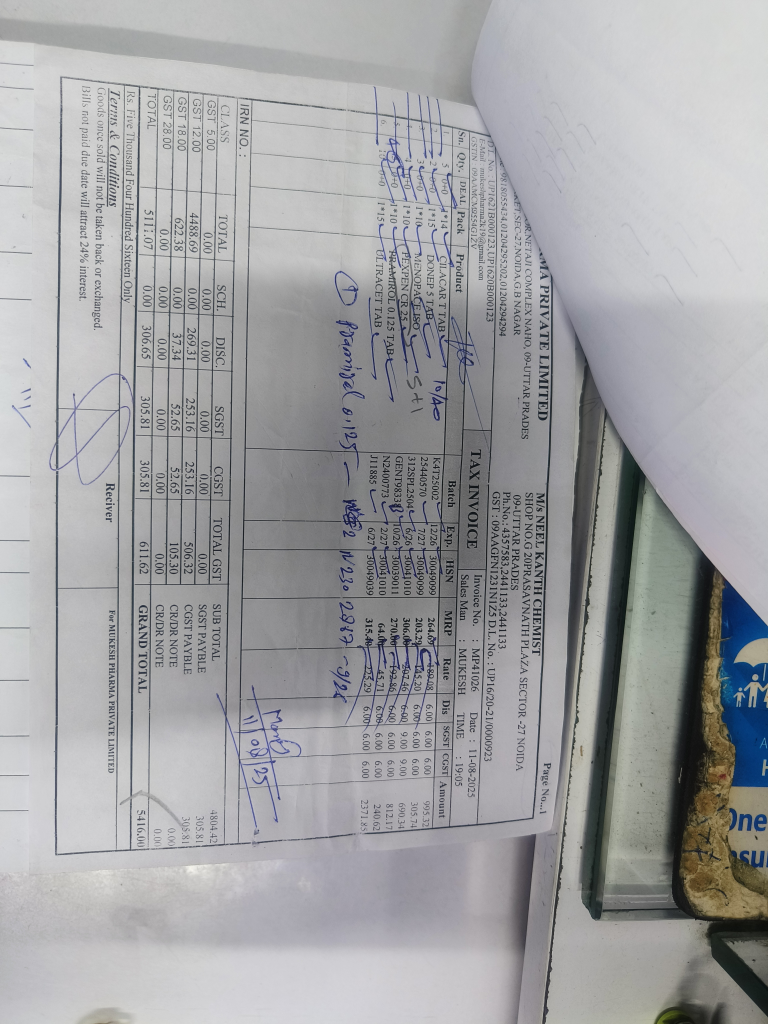 ARMA PRIVATE LIMITED
OR,NETAJI COMPLEX NAHO, 09-UTTAR PRADES
SEC-27,NOIDA,G B NAGAR
9818055434,01204295202,01204294294
UP1621B000123,UP1620B000123
E-Mail mukeshpharma2k19@gmail.com
GSTIN 09AAMCM8554G1ZV
Page No...1
M/s NEEL KANTH CHEMIST
SHOP NO.G 20PRASAVNATH PLAZA SECTOR -27 NOIDA
09-UTTAR PRADES
Ph.No.: 4357583,2441133,2441133
GST : 09AAGFN1231N1Z5 D.L. No. : UP16/20-21/0000923
TAX INVOICE
Invoice No. : MP41026 Date : 11-08-2025
Sales Man : MUKESH TIME : 19:05
Sn. Qty. DEAL Pack Product Batch Exp. HSN MRP Rate Dis SGST CGST Amount
1. 5 0+0 1*14 CILACAR T TAB 10/40 K4T2S002 12/26 30049099 264.69 189.08 6.00 6.00 6.00 995.32
2. 0+0 1*15 DONEP 5 TAB 25440570 2/27 30049099 203.29 145.20 6.00 6.00 6.00 305.74
3. 0+0 1*10 MENOPACE ISO 5+1 312SPL2504 6/26 6.00 9.00 9.00 690.34
4. 0+0 1*10 PEXPEN CR 25 10/26 30039011 192.86 6.00 6.00 6.00 812.17
0+0 1*10 PRAMIROL 0.125 TAB N2400773 2/27 30041010 45.71 6.00 6.00 6.00 240.62
6. 0+0 1*15 ULTRACET TAB J11885 6/27 30049039 315.40 225.29 6.00 6.00 6.00 2371.85
① Pramirol 0.125 — N2302987 - 9/26
11/08/25
IRN NO. :
CLASS TOTAL SCH. DISC. SGST CGST TOTAL GST
GST 5.00 0.00 0.00 0.00 0.00 0.00 0.00
GST 12.00 4488.69 0.00 269.31 253.16 253.16 506.32
GST 18.00 622.38 0.00 37.34 52.65 52.65 105.30
GST 28.00 0.00 0.00 0.00 0.00 0.00 0.00
TOTAL 5111.07 0.00 306.65 305.81 305.81 611.62
SUB TOTAL 4804.42
SGST PAYBLE 305.81
CGST PAYBLE 305.81
CR/DR NOTE 0.00
CR/DR NOTE 0.00
GRAND TOTAL 5416.00
Rs. Five Thousand Four Hundred Sixteen Only
Terms & Conditions
Goods once sold will not be taken back or exchanged.
Bills not paid due date will attract 24% interest.
Reciver
For MUKESH PHARMA PRIVATE LIMITED